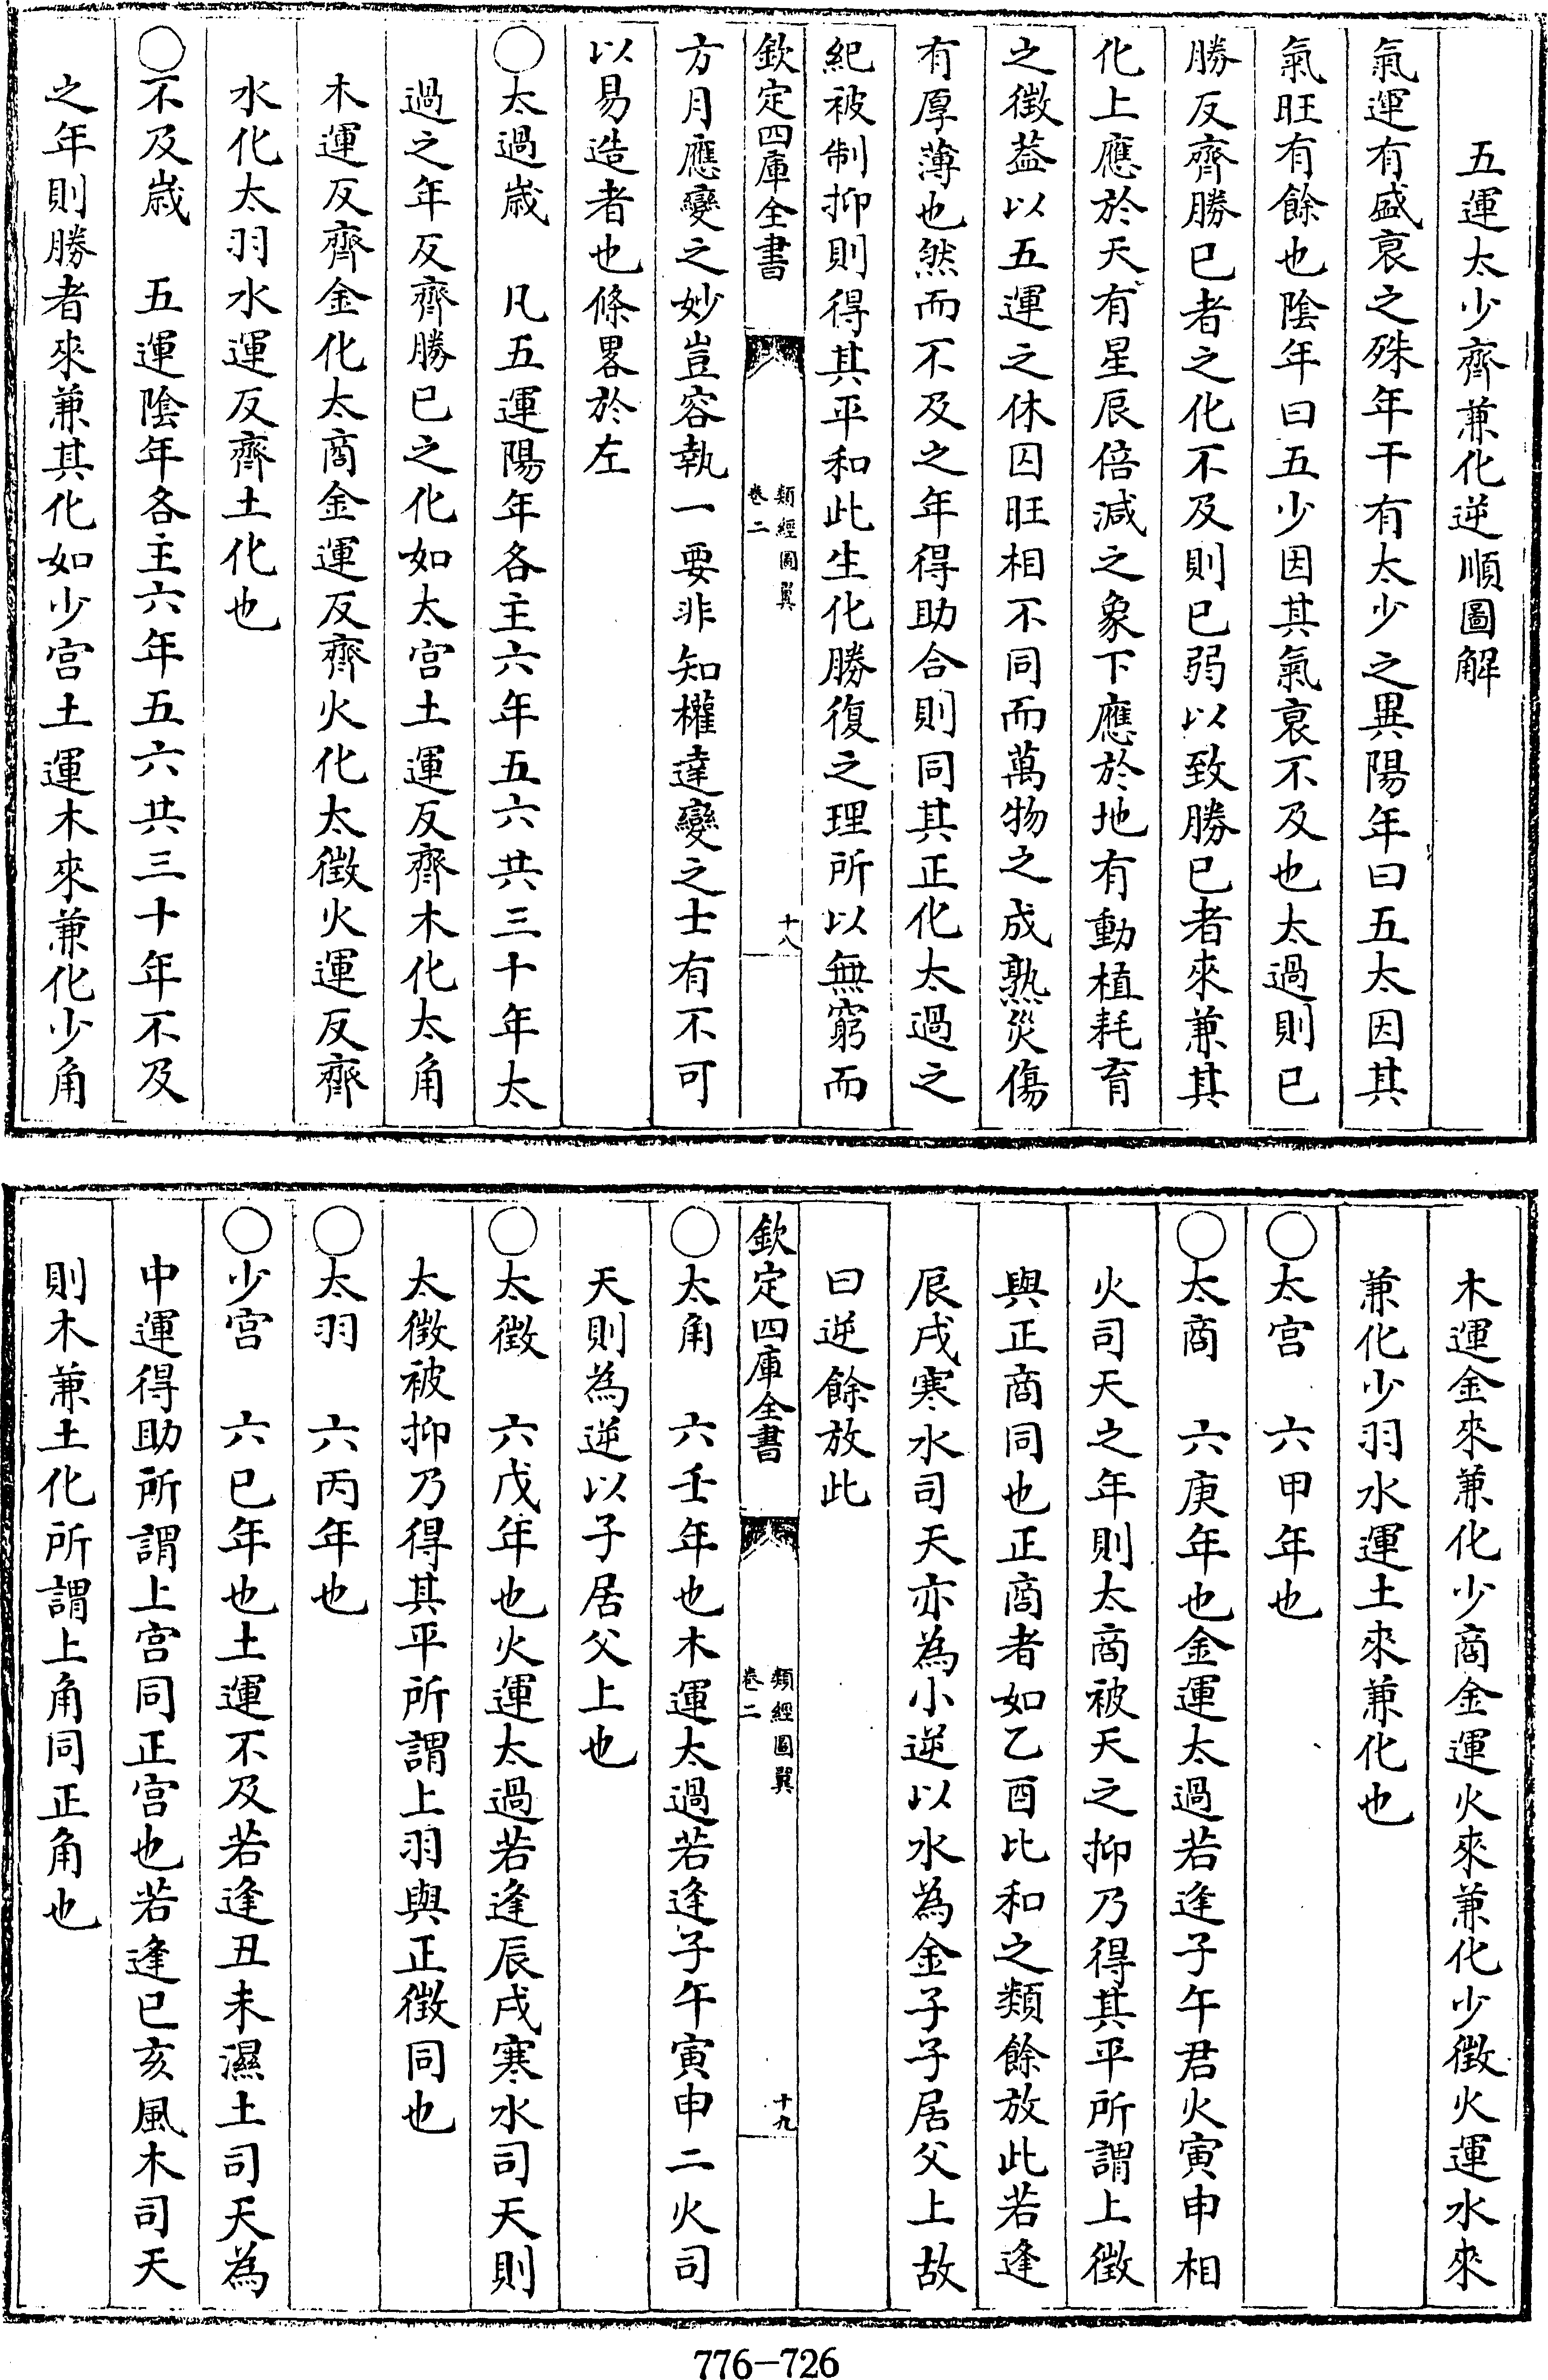 五運太少齊兼化逆順圖解
氣運有盛衰之殊年干有太少之異陽年曰五太因其
氣旺有餘也陰年曰五少因其氣衰不及也太過則已
勝反齊勝已者之化不及則已弱以致勝已者來兼其
化上應於天有星辰倍減之象下應於地有動植耗育
之徵葢以五運之休囚旺相不同而萬物之成熟災傷
有厚薄也然而不及之年得助合則同其正化太過之
紀被制抑則得其平和此生化勝復之理所以無窮而
欽定四庫全書
類經圖翼
卷二
十八
方月應變之妙豈容執一要非知權達變之士有不可
以易造者也條畧於左
○太過歲　凡五運陽年各主六年五六共三十年太
過之年反齊勝已之化如太宫土運反齊木化太角
木運反齊金化太商金運反齊火化太徵火運反齊
水化太羽水運反齊土化也
○不及歲　五運陰年各主六年五六共三十年不及
之年則勝者來兼其化如少宫土運木來兼化少角
木運金來兼化少商金運火來兼化少徵火運水來
兼化少羽水運土來兼化也
○太宫　六甲年也
○太商　六庚年也金運太過若逢子午君火寅申相
火司天之年則太商被天之抑乃得其平所謂上徵
與正商同也正商者如乙酉比和之類餘放此若逢
辰戌寒水司天亦為小逆以水為金子子居父上故
曰逆餘放此
欽定四庫全書
類經圖翼
卷二
十九
○太角　六壬年也木運太過若逢子午寅申二火司
天則為逆以子居父上也
○太徵　六戊年也火運太過若逢辰戌寒水司天則
太徵被抑乃得其平所謂上羽與正徵同也
○太羽　六丙年也
○少宫　六已年也土運不及若逢丑未濕土司天為
中運得助所謂上宫同正宫也若逢已亥風木司天
則木兼土化所謂上角同正角也
776-726